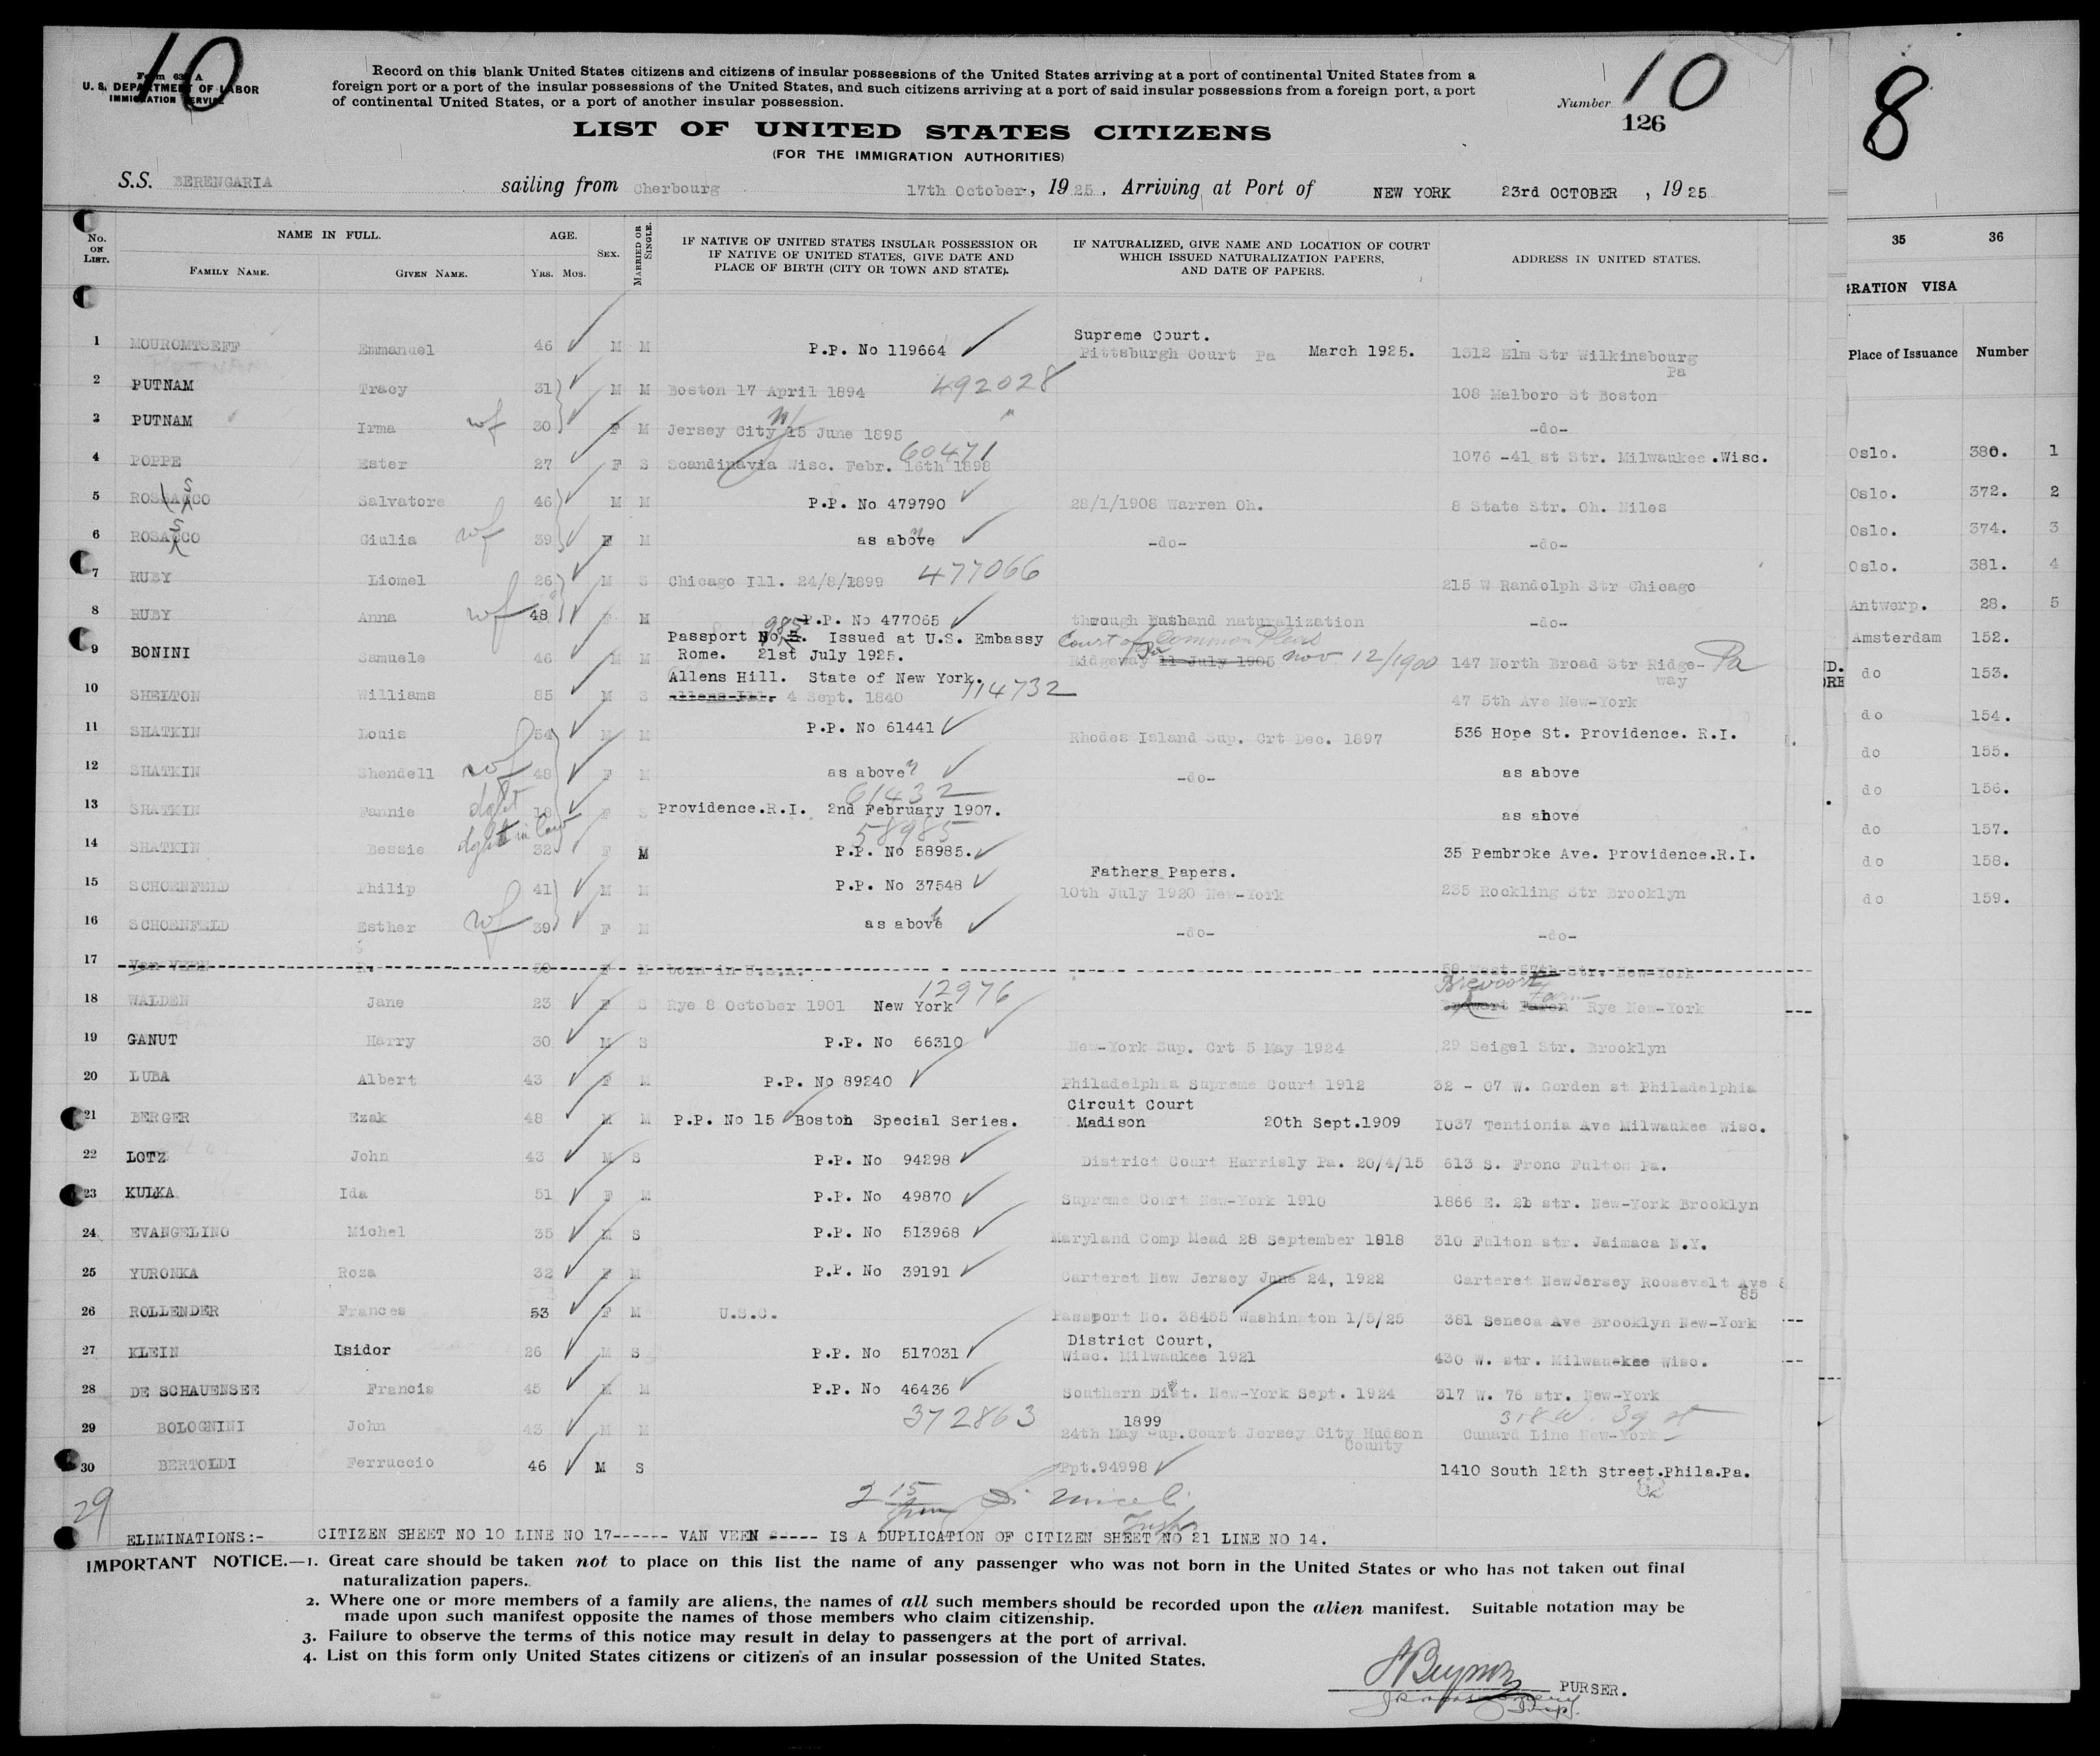 10
Form 630 A
U. S. DEPARTMENT OF LABOR
IMMIGRATION SERVICE
Record on this blank United States citizens and citizens of insular possessions of the United States arriving at a port of continental United States from a
foreign port or a port of the insular possessions of the United States, and such citizens arriving at a port of said insular possessions from a foreign port, a port
of continental United States, or a port of another insular possession.
Number 10
126
LIST OF UNITED STATES CITIZENS
(FOR THE IMMIGRATION AUTHORITIES)
S.S. BERENGARIA sailing from Cherbourg 17th October, 1925, Arriving at Port of NEW YORK 23rd OCTOBER, 1925
No. ON LIST. NAME IN FULL. FAMILY NAME. GIVEN NAME. AGE. YRS. MOS. SEX. MARRIED OR SINGLE. IF NATIVE OF UNITED STATES INSULAR POSSESSION OR IF NATIVE OF UNITED STATES, GIVE DATE AND PLACE OF BIRTH (CITY OR TOWN AND STATE). IF NATURALIZED, GIVE NAME AND LOCATION OF COURT WHICH ISSUED NATURALIZATION PAPERS, AND DATE OF PAPERS. ADDRESS IN UNITED STATES.
1 MOUROMTSEFF Emmanuel 46 M M P.P. No 119664 Supreme Court. Pittsburgh Court Pa March 1925. 1312 Elm Str Wilkinsbourg Pa
2 PUTNAM Tracy 31 M M Boston 17 April 1894 492028 108 Malboro St Boston
3 PUTNAM Irma wf 30 F M Jersey City NJ 15 June 1895 " -do-
4 POPPE Ester 27 F S Scandinavia Wisc. Febr. 16th 1898 60471 1076 -41 st Str. Milwaukee.Wisc.
5 ROSSASCO Salvatore 46 M M P.P. No 479790 28/1/1908 Warren Oh. 8 State Str. Oh. Niles
6 ROSASCO Giulia wf 39 F M as above -do- -do-
7 RUBY Liomel 26 M S Chicago Ill. 24/8/1899 477066 215 W Randolph Str Chicago
8 RUBY Anna wf 48 F M P.P. No 477065 through Husband naturalization -do-
9 BONINI Samuele 46 M M Passport No. 985 Issued at U.S. Embassy Rome. 21st July 1925. Court of Common Pleas Ridgeway Pa 11 July 1905 Nov. 12/1900 147 North Broad Str Ridge-way Pa
10 SHELTON Williams 85 M S Allens Hill. State of New York. Allens Ill. 4 Sept. 1840 114732 47 5th Ave New-York
11 SHATKIN Louis 54 M M P.P. No 61441 Rhodes Island Sup. Crt Dec. 1897 536 Hope St. Providence. R.I.
12 SHATKIN Shendell wf 48 F M as above -do- as above
13 SHATKIN Fannie dght 18 F S Providence.R.I. 2nd February 1907. 61432 as above
14 SHATKIN Bessie dght in law 32 F M 58985 P.P. No 58985. 35 Pembroke Ave. Providence.R.I.
15 SCHOENFELD Philip 41 M M P.P. No 37548 Fathers Papers. 10th July 1920 New-York 235 Rockling Str Brooklyn
16 SCHOENFELD Esther wf 39 F M as above -do- -do-
17 Van VEEN 50 F M born in U.S.A. 58 West 57th Str. New-York
18 WALDEN Jane 23 F S Rye 8 October 1901 New York 12976 Brevoort Farm Rye New-York
19 GANUT Harry 30 M S P.P. No 66310 New-York Sup. Crt 5 May 1924 29 Seigel Str. Brooklyn
20 LUBA Albert 43 F M P.P. No 89240 Philadelphia Supreme Court 1912 32 - 07 W. Gorden st Philadelphia
21 BERGER Ezak 48 M M P.P. No 15 Boston Special Series. Circuit Court Madison 20th Sept.1909 1037 Tentionia Ave Milwaukee Wisc.
22 LOTZ John 43 M S P.P. No 94298 District Court Harrisly Pa. 20/4/15 613 S. Fronc Fulton Pa.
23 KULKA Ida 51 F M P.P. No 49870 Supreme Court New-York 1910 1866 E. 2b str. New-York Brooklyn
24 EVANGELINO Michel 35 M S P.P. No 513968 Maryland Comp Mead 28 September 1918 310 Fulton str. Jaimaca N.Y.
25 YURONKA Roza 32 F M P.P. No 39191 Carteret New Jersey June 24, 1922 Carteret NewJersey Roosevelt Ave 85
26 ROLLENDER Frances 53 F M U.S.C. Passport No. 38455 Washington 1/5/25 381 Seneca Ave Brooklyn New-York
27 KLEIN Isidor 26 M S P.P. No 517031 District Court, Wisc. Milwaukee 1921 430 W. str. Milwaukee Wisc.
28 DE SCHAUENSEE Francis 45 M M P.P. No 46436 Southern Dist. New-York Sept. 1924 317 W. 76 str. New-York
29 BOLOGNINI John 43 M M 372863 1899 24th May Sup.Court Jersey City Hudson County 318 W. 39 st Cunard Line New-York
30 BERTOLDI Ferruccio 46 M S Ppt.94998 1410 South 12th Street.Phila.Pa.
29
2 15
ELIMINATIONS:- CITIZEN SHEET NO 10 LINE NO 17------ VAN VEEN ----- IS A DUPLICATION OF CITIZEN SHEET NO 21 LINE NO 14.
IMPORTANT NOTICE.—1. Great care should be taken not to place on this list the name of any passenger who was not born in the United States or who has not taken out final
naturalization papers.
2. Where one or more members of a family are aliens, the names of all such members should be recorded upon the alien manifest. Suitable notation may be
made upon such manifest opposite the names of those members who claim citizenship.
3. Failure to observe the terms of this notice may result in delay to passengers at the port of arrival.
4. List on this form only United States citizens or citizens of an insular possession of the United States.
PURSER.
8
35 36
GRATION VISA
Place of Issuance Number
Oslo. 380. 1
Oslo. 372. 2
Oslo. 374. 3
Oslo. 381. 4
Antwerp. 28. 5
Amsterdam 152.
do 153.
do 154.
do 155.
do 156.
do 157.
do 158.
do 159.